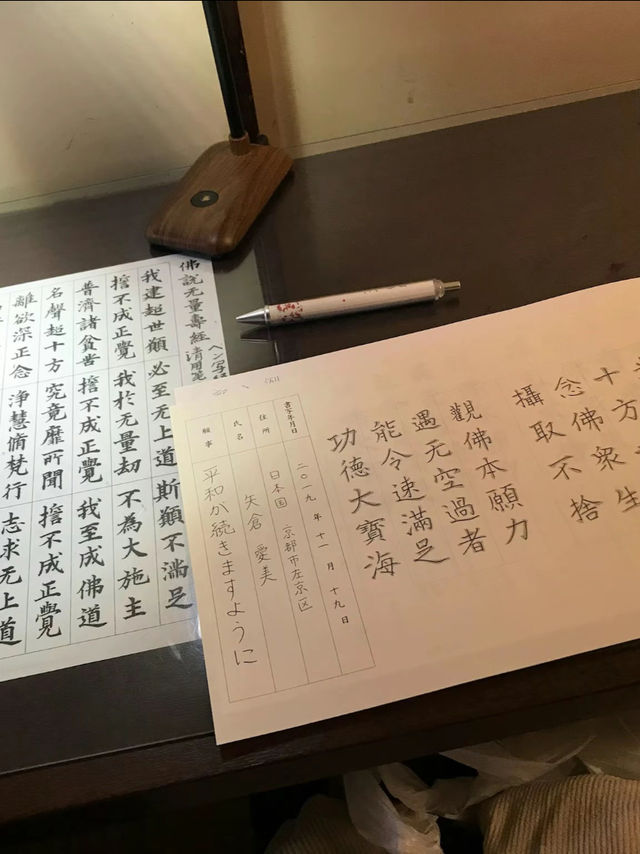 十方
念佛衆生
攝取不捨
觀佛本願力
遇无空過者
能令速満足
功德大寶海
書写年月日 二〇一九年十一月十九日
住所 日本国 京都市左京区
氏名 矢倉 愛美
願事 平和が続きますように
ペン写経
佛說无量壽經
我建超世願 必至无上道 斯願不満足
誓不成正覺 我於无量劫 不為大施主
普濟諸貧苦 誓不成正覺 我至成佛道
名聲超十方 究竟靡所聞 誓不成正覺
離欲深正念 淨慧脩梵行 志求无上道